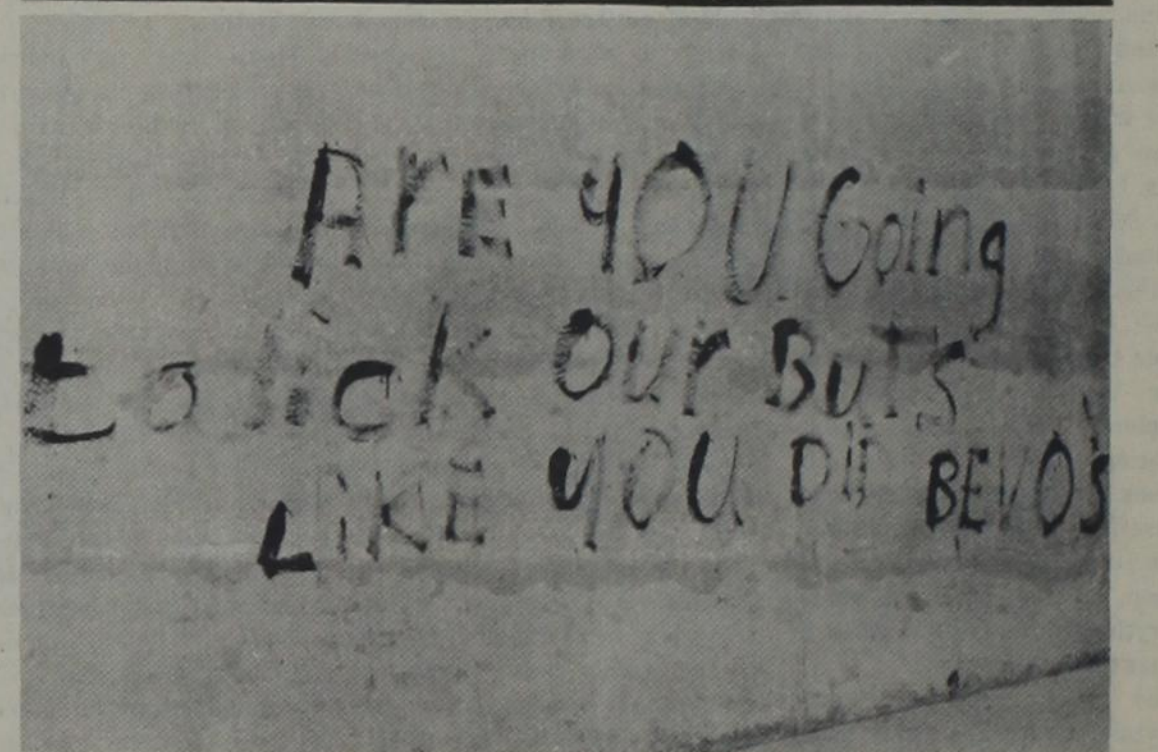 ArE YOU Going
to lick Our BuTs
LiKE YOU Did BEVO'S